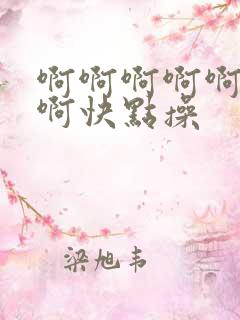 啊啊啊啊啊
啊快點操
梁旭韦